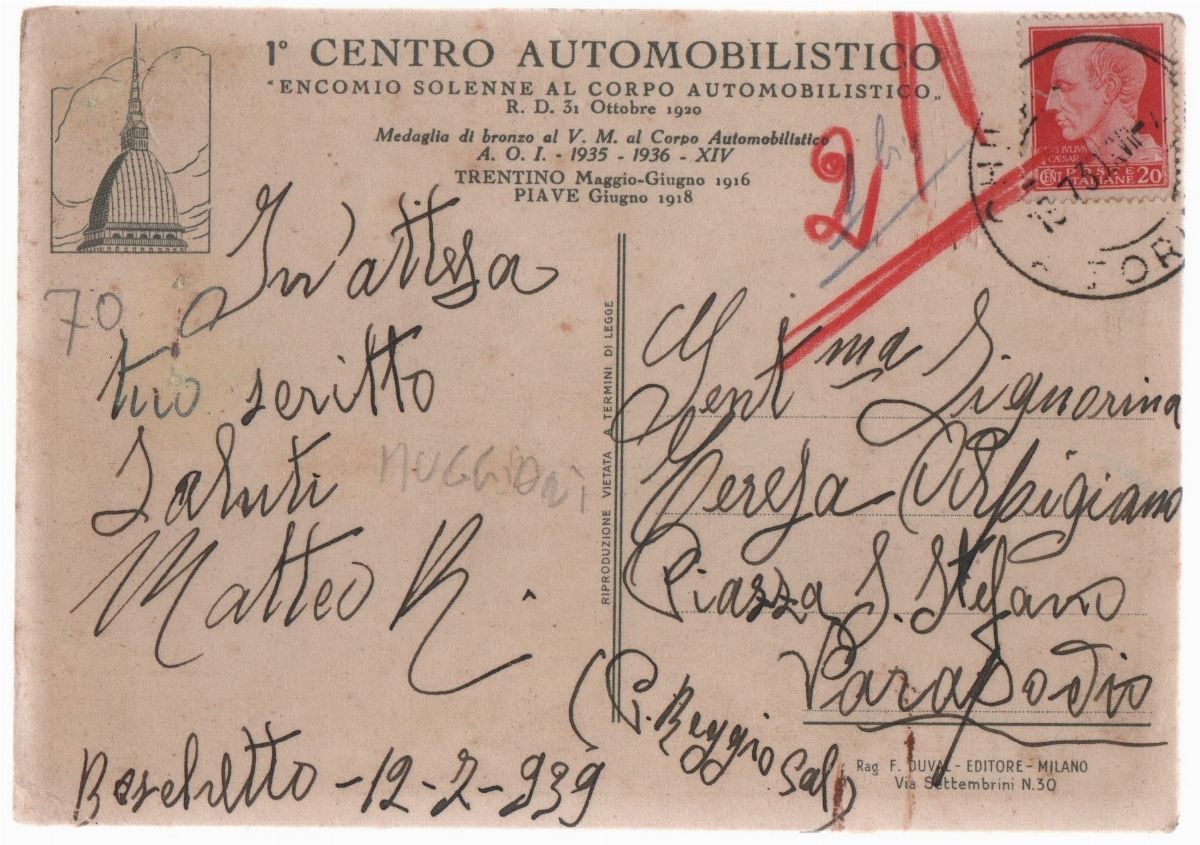 1° CENTRO AUTOMOBILISTICO
"ENCOMIO SOLENNE AL CORPO AUTOMOBILISTICO„
R. D. 31 Ottobre 1920
Medaglia di bronzo al V. M. al Corpo Automobilistico
A. O. I. - 1935 - 1936 - XIV
TRENTINO Maggio-Giugno 1916
PIAVE Giugno 1918
2
bis
CENT POSTE ITALIANE 20
70
In attesa
tuo scritto
Saluti
Matteo R.
Boschetto - 12-2-939
RIPRODUZIONE VIETATA A TERMINI DI LEGGE
Gent ma Signorina
Teresa Arpigiano
Piazza S. Stefano
Parapodio
(P. Reggio Cal)
Rag. F. DUVAL - EDITORE - MILANO
Via Settembrini N.30